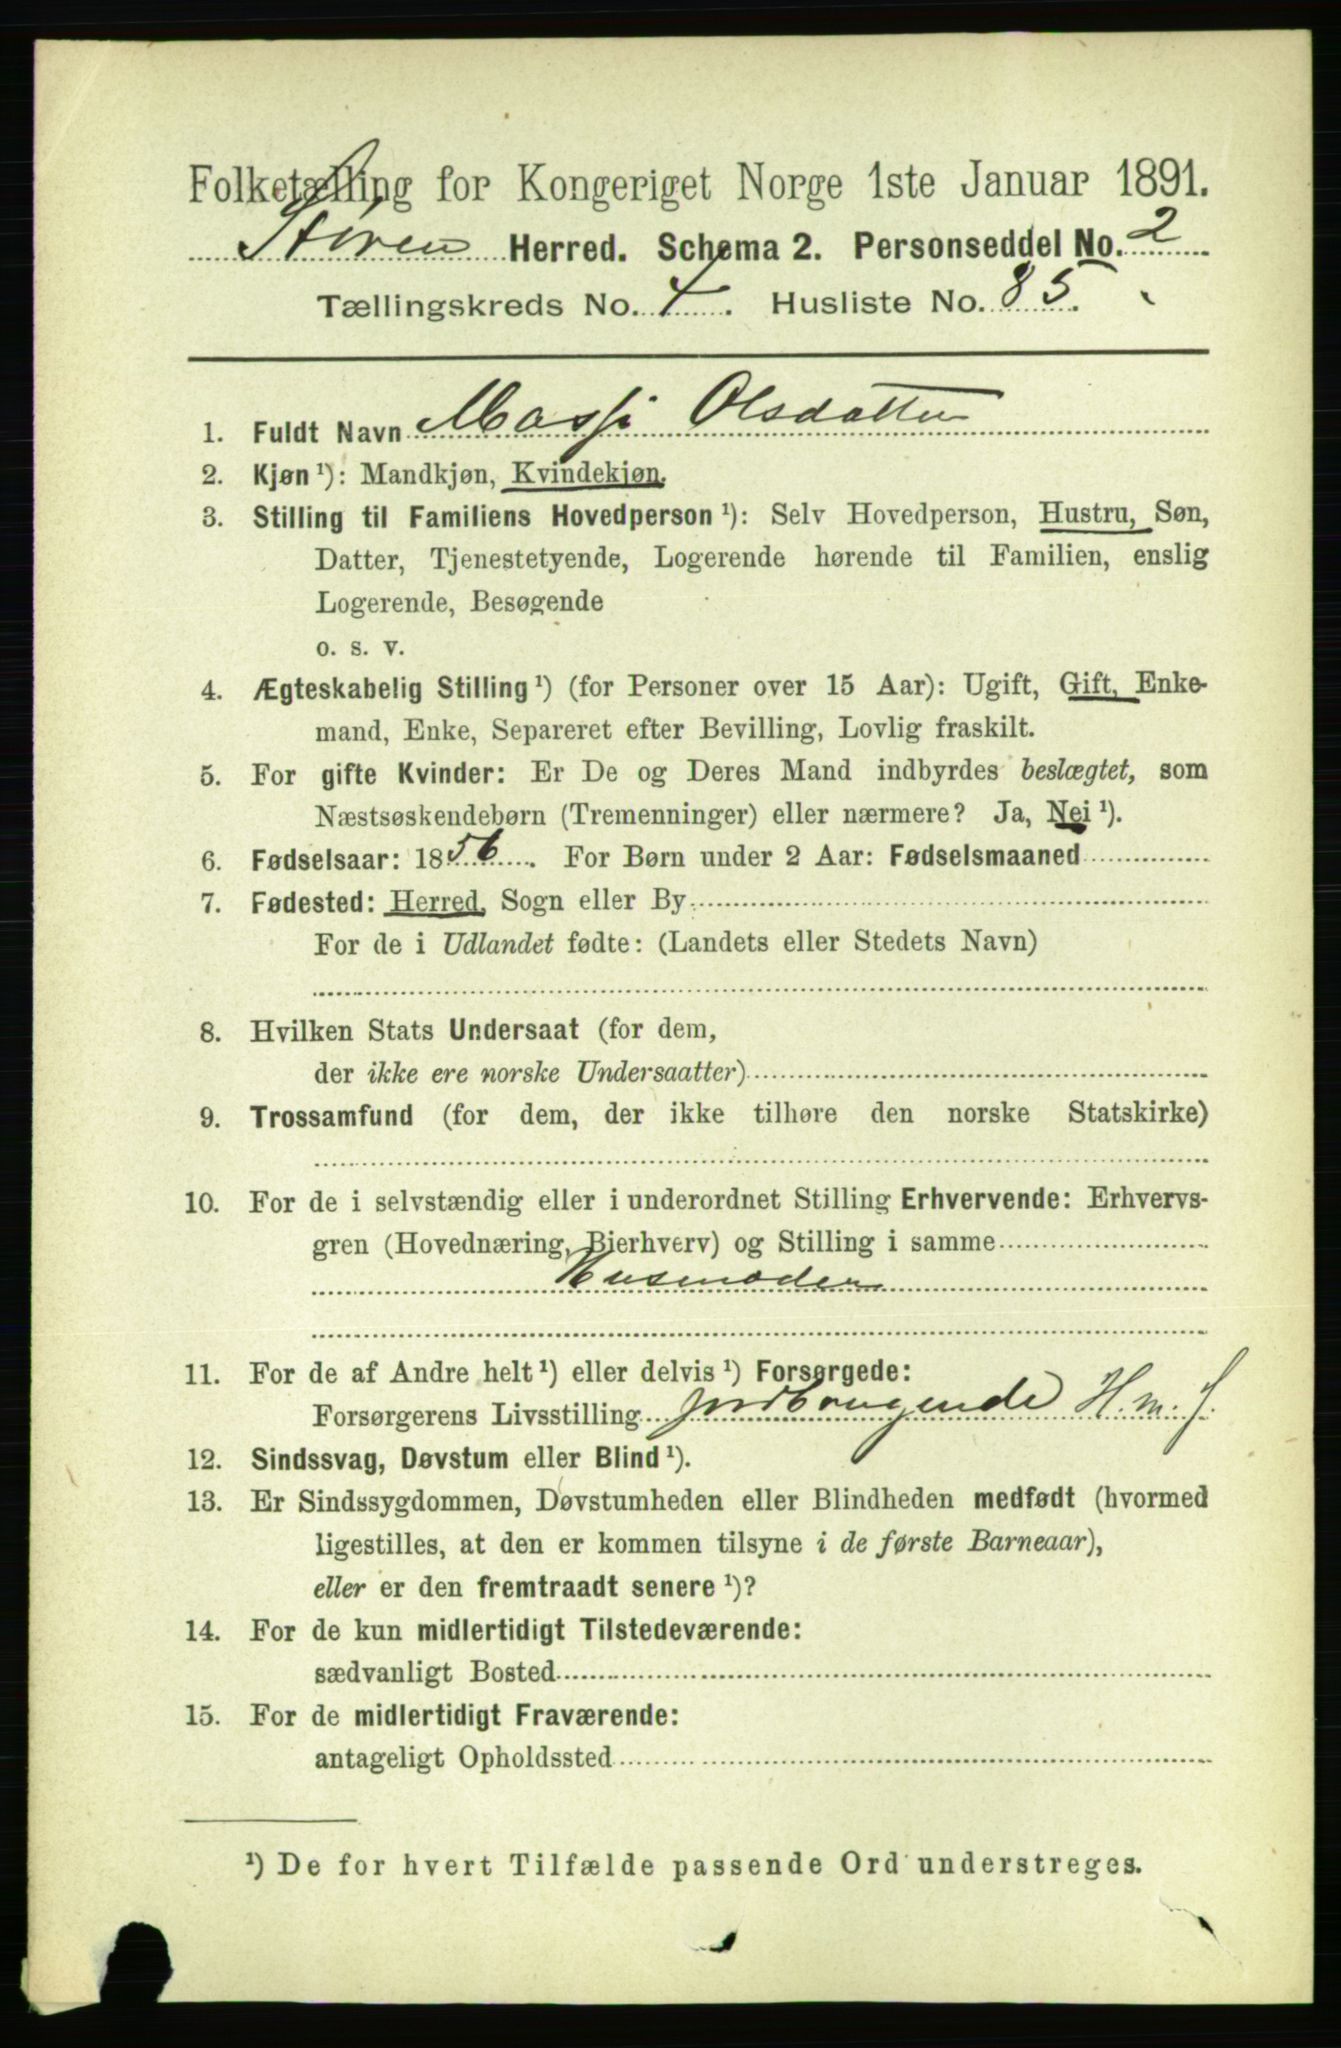 Folketælling for Kongeriget Norge 1ste Januar 1891.
Støren Herred. Schema 2. Personseddel No. 2
Tællingskreds No. 4. Husliste No. 85.
1. Fuldt Navn Massi Olsdatter
2. Kjøn ¹): Mandkjøn, Kvindekjøn.
3. Stilling til Familiens Hovedperson ¹): Selv Hovedperson, Hustru, Søn,
Datter, Tjenestetyende, Logerende hørende til Familien, enslig
Logerende, Besøgende
o. s. v.
4. Ægteskabelig Stilling ¹) (for Personer over 15 Aar): Ugift, Gift, Enke-
mand, Enke, Separeret efter Bevilling, Lovlig fraskilt.
5. For gifte Kvinder: Er De og Deres Mand indbyrdes beslægtet, som
Næstsøskendebørn (Tremenninger) eller nærmere? Ja, Nei ¹).
6. Fødselsaar: 1856. For Børn under 2 Aar: Fødselsmaaned
7. Fødested: Herred, Sogn eller By
For de i Udlandet fødte: (Landets eller Stedets Navn)
8. Hvilken Stats Undersaat (for dem,
der ikke ere norske Undersaatter)
9. Trossamfund (for dem, der ikke tilhøre den norske Statskirke)
10. For de i selvstændig eller i underordnet Stilling Erhvervende: Erhvervs-
gren (Hovednæring, Bierhverv) og Stilling i samme
Husmoder
11. For de af Andre helt ¹) eller delvis ¹) Forsørgede:
Forsørgerens Livsstilling Jordbrugende H. m. J.
12. Sindssvag, Døvstum eller Blind ¹).
13. Er Sindssygdommen, Døvstumheden eller Blindheden medfødt (hvormed
ligestilles, at den er kommen tilsyne i de første Barneaar),
eller er den fremtraadt senere ¹)?
14. For de kun midlertidigt Tilstedeværende:
sædvanligt Bosted
15. For de midlertidigt Fraværende:
antageligt Opholdssted
¹) De for hvert Tilfælde passende Ord understreges.